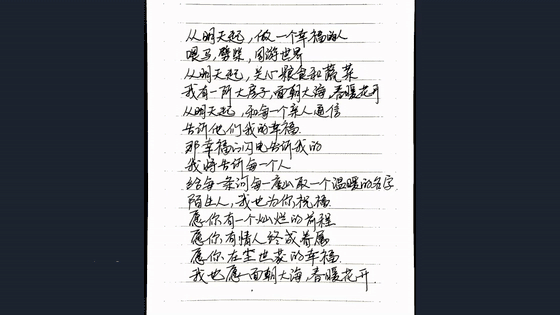 从明天起,做一个幸福的人
喂马,劈柴,周游世界
从明天起,关心粮食和蔬菜
我有一所大房子,面朝大海,春暖花开
从明天起,和每一个亲人通信
告诉他们我的幸福
那幸福的闪电告诉我的
我将告诉每一个人
给每一条河每一座山取一个温暖的名字
陌生人,我也为你祝福
愿你有一个灿烂的前程
愿你有情人终成眷属
愿你在尘世获的幸福
我也愿面朝大海,春暖花开.